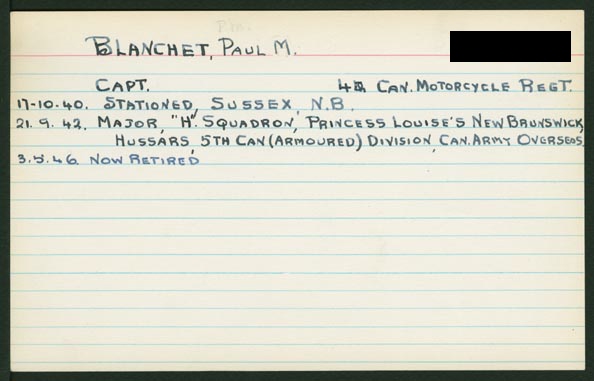 P.M.
BLANCHET, PAUL M.
CAPT. 4 CAN. MOTORCYCLE REGT.
17-10-40. STATIONED, SUSSEX, N.B.
21.9.42. MAJOR, "H" SQUADRON, PRINCESS LOUISE'S NEW BRUNSWICK,
HUSSARS, 5TH CAN (ARMOURED) DIVISION, CAN. ARMY OVERSEAS.
3.5.46. NOW RETIRED